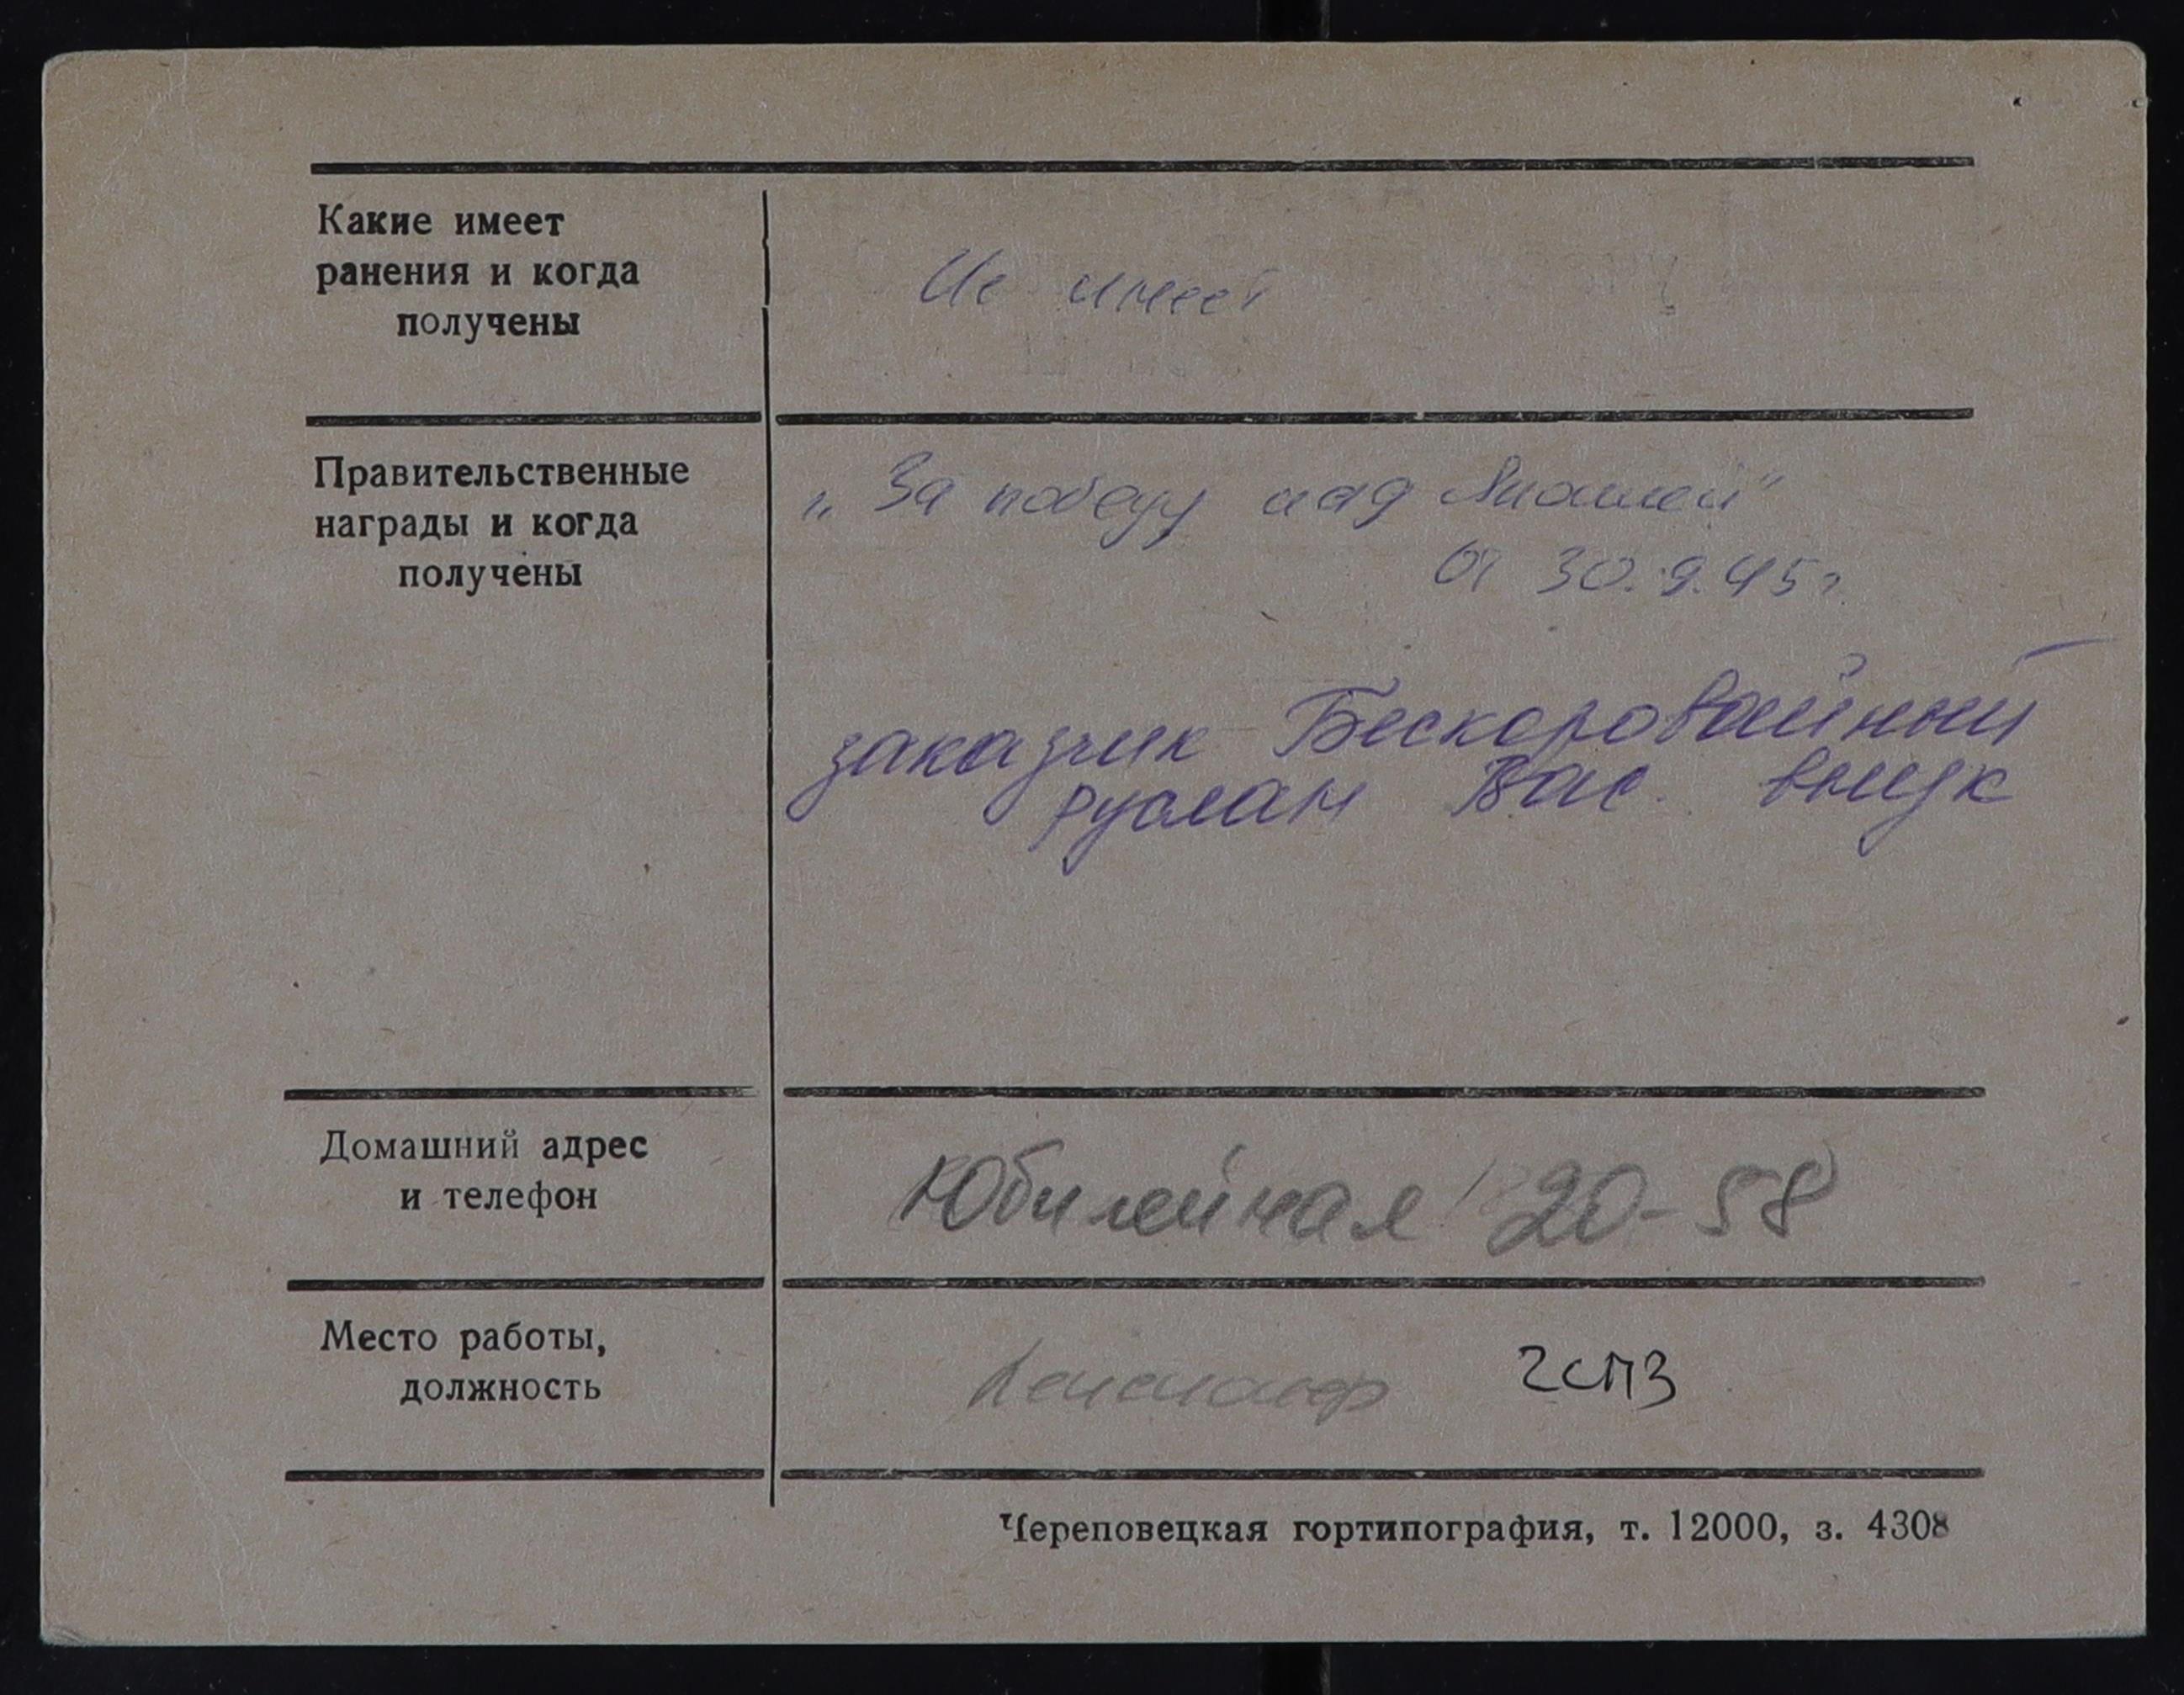 Какие имеет
ранения и когда
получены
Не имеет
Правительственные
награды и когда
получены
„За победу над Японией"
от 30.9.45г.
заказчик Бескоровайный
Руслан Вас. внук
Домашний адрес
и телефон
Юбилейная 20-58
Место работы,
должность
Пенсионер ЧСПЗ
Череповецкая гортипография, т. 12000, з. 4308